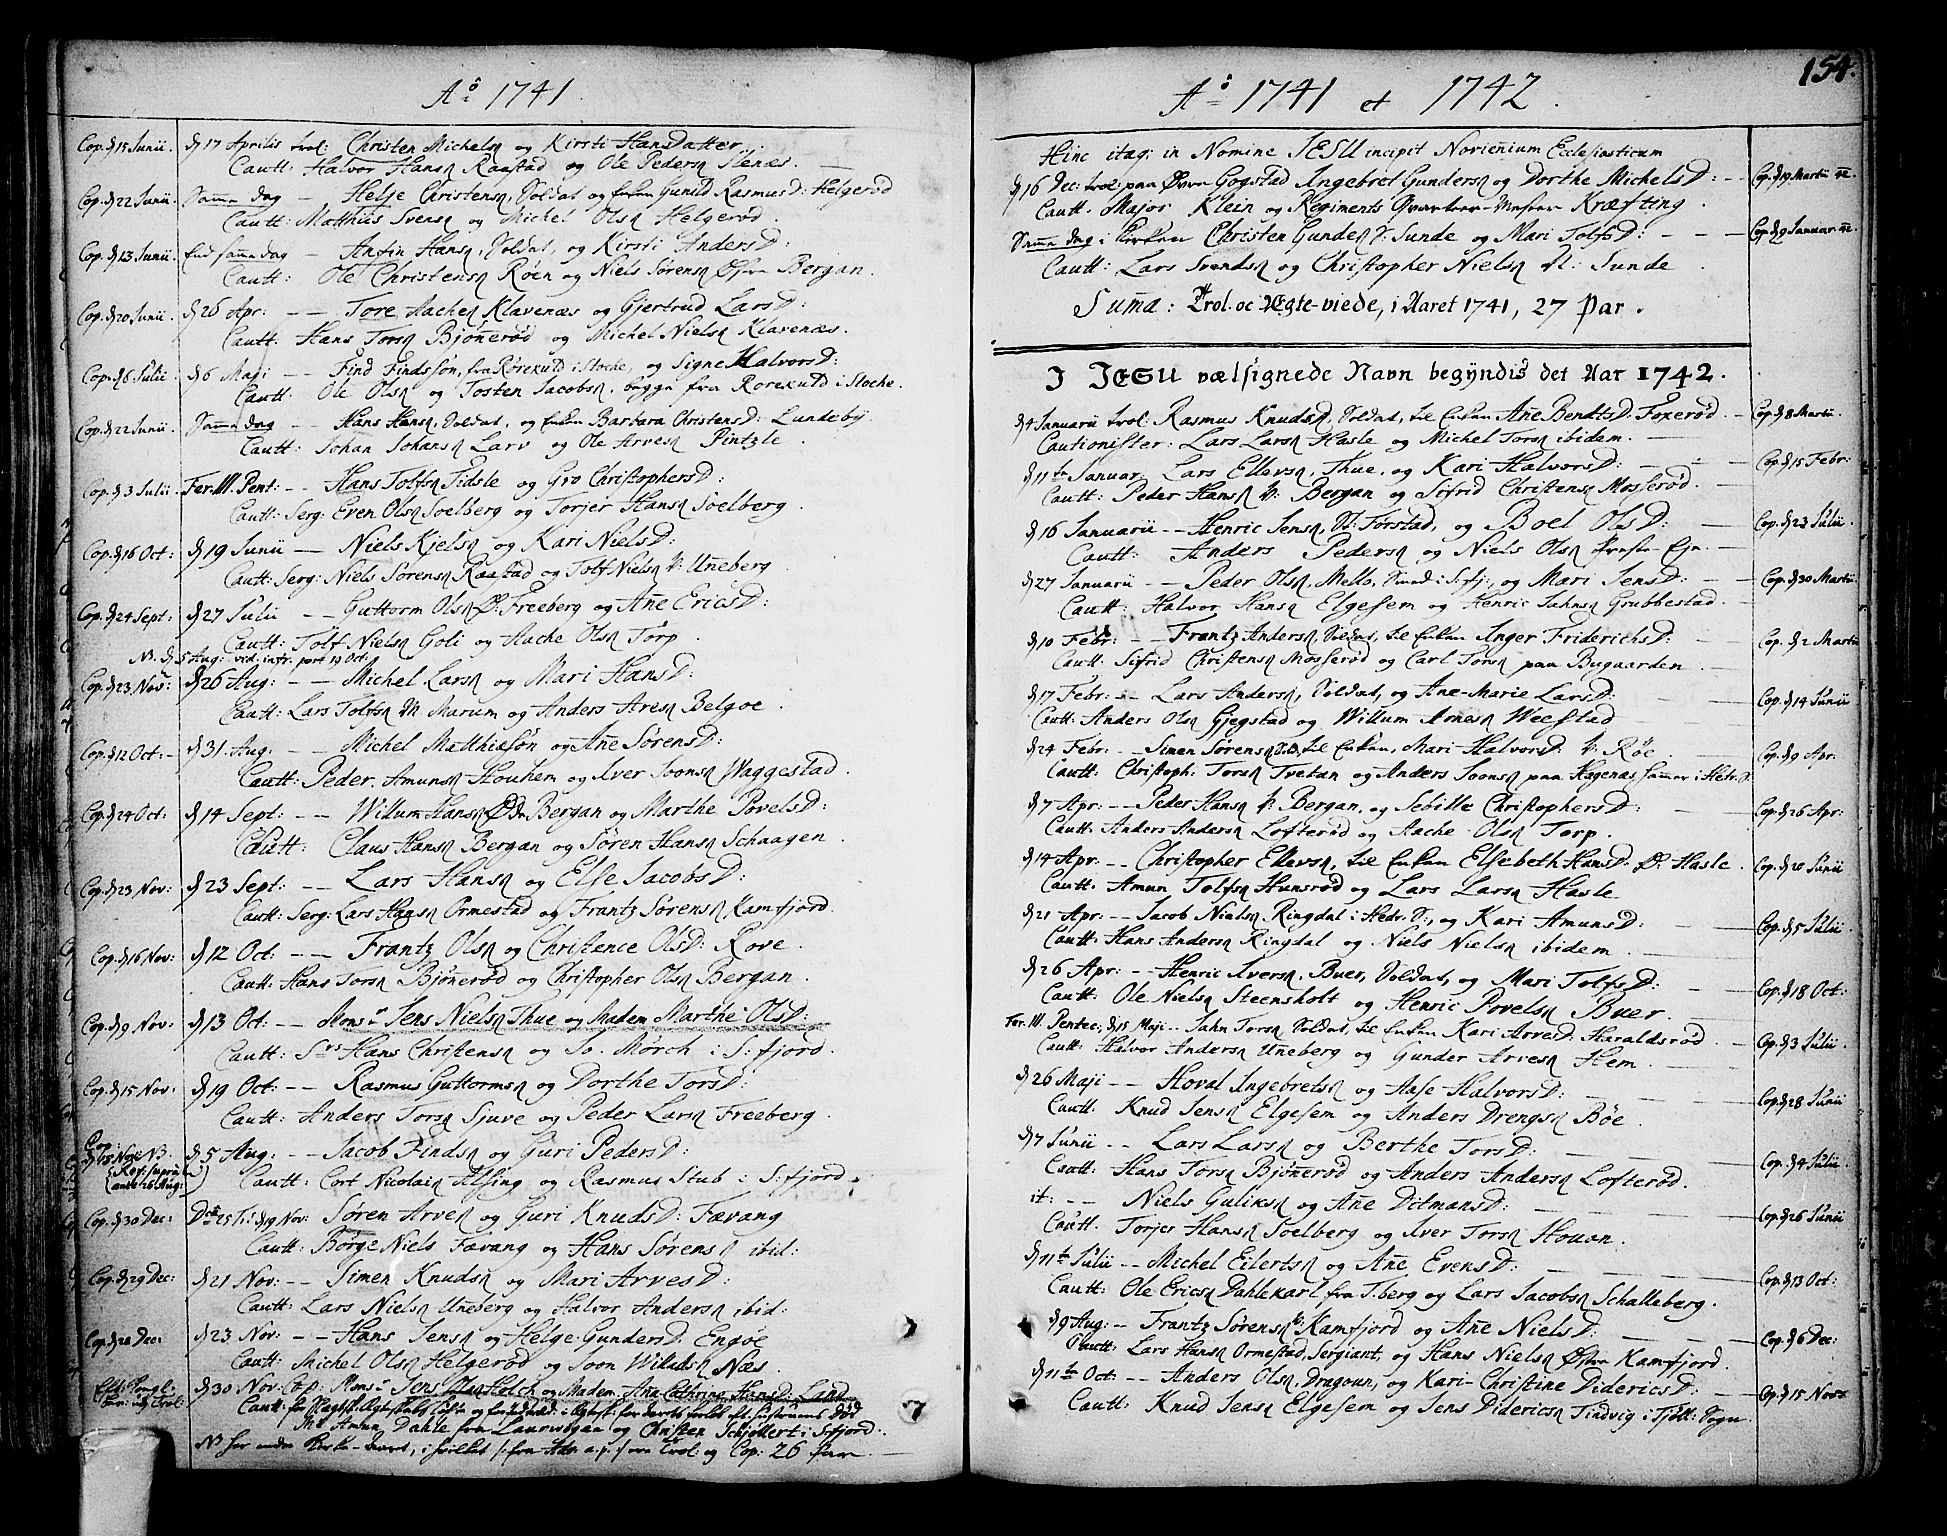 Aō 1741
Cop. d 15 Junii. d 17 Aprilis trol: Christen Michelsn og Kirsti HansDatter.
Cautt: Halvor Hansn Raastad og Ole Pedersn Stenæs.
Cop. d 22 Junii. Samme dag — Helje Christensn, Soldat og Enken Gunild RasmusD: Helgerød
Cautt: Matthiis Svensn og Michel Olsn Helgerød.
Cop. d 13 Junii. End samme dag — Anfin Hansn, Soldat, og Kirsti AndersD:
Cautt: Ole Christensn Røen og Niels Sørensn Østre Bergan.
Cop. d 20 Junii. d 26 Apr: — — Tore Aachesn Klavenæs og Gjertrud LarsD:
Cautt: Hans Torsn Bjønerød og Michel Nielsn Klavenæs.
Cop. d 6 Julii. d 6 Maji — Find Findssøn, fra Rosekuld i Stoche, og Signe HalvorsD:
Cautt: Ole Olsn og Tosten Jacobsn, begge fra Rosekuld i Stoche.
Cop. d 22 Junii. Samme dag — Hans Hansn, Soldat, og Enken Barbara ChristensD: Lundeby
Cautt: Johan Johansn Larv og Ole Arvesn Pintzle
Cop. d 3 Julii. Fer. III. Pent: — — Hans Tolfsn Tidsle og Gro ChristophersD:
Cautt: Serg: Even Olsn Soelberg og Torjer Hansn Soelberg.
Cop. d 16 Oct: d 19 Junii — Niels Kjelsn og Kari NielsD:
Cautt: Serg: Niels Sørensn Raastad og Tolf Nielsn V: Uneberg.
Cop. d 24 Sept: d 27 Julii — — Guttorm Olsn Ø: Freeberg og Añe EricsD:
Cautt: Tolf Nielsn Goli og Aache Olsn Torp.
N. d 5 Aug: vid. infr. post 19 Oct:
Cop. d 23 Nov: d 26 Aug: — — Michel Larsn og Mari HansD:
Cautt: Lars Tolfsn N: Marum og Anders Aresn Belgoe.
Cop. d 12 Oct: — d 31 Aug: — Michel Matthissøn og Añe SørensD:
Cautt: Peder Amunsn Houhem og Iver Joonsn Waggestad.
Cop. d 24 Oct: d 14 Sept: — — Willum Hansn Ø: Bergan og Marthe PovelsD:
Cautt: Claus Hansn Bergan og Søren Hansn Schaagen
Cop. d 23 Nov: d 23 Sept: — — Lars Hansn og Else JacobsD:
Cautt: Serg: Lars Hansn Ormestad og Frantz Sørensn Kamfjord.
Cop. d 16 Nov: d 12 Oct: — — Frantz Olsn og Christence OlsD: Rove.
Cautt: Hans Torsn Bjønerød og Christopher Olsn Bergan.
Cop. d 9 Nov: d 13 Oct: — Monsr Jens Nielsn Thue og Madem Marthe OlsD:
Cautt: Srs Hans Christensn og Jo. Mørch i S:fjord.
Cop. d 15 Nov: d 19 Oct: — — Rasmus Guttormsn og Dorthe TorsD:
Cautt: Anders Torsn Sjuve og Peder Larsn Freeberg.
Cop: d 18 Nov: NB. d 5 Aug: — — Jacob Findsn og Guri PedersD:
(Rev: supra ante 26 Aug:) Cautt: Cort Nicolain Alsing og Rasmus Stub i S:fjord.
Cop. d 30 Dec: D 25 Tr: d 19 Nov: Søren Arvesn og Guri KnudsD: Fævang
Cautt: Børge Niels Fævang og Hans Sørensn ibid:
Cop. d 29 Dec: d 21 Nov: — — Simen Knudsn og Mari ArvesD:
Cautt: Lars Nielsn Uneberg og Halvor Andersn ibid:
Cop. d 20 Dec: d 23 Nov: — — Hans Jensn og Helge GundersD: Engøe
Cautt: Michel Olsn Helgerød og Joon Willadsn Næs.
d 30 Nov. Cop: Monsr Jens Holch og Madem Ana Cathrine HansD: Land
Mr Amun Dahle fra Laurwigen og Christen Schjøllert i S:fjord.
Trol: og Cop: 26 Par
154.
Aō 1741 et 1742.
Hinc itaq; in Nomine JESU incipit Novieñium Ecclesiasticum
d 16 Dec: trol: paa Østre Gogstad Ingebret Gundersn og Dorthe MichelsD: — Cop. d 19 Martii 42.
Cautt. Major Klein og Regiments Qvarteer-Mester Kræfting.
Samme dag i Kirken Christen Gundersn V: Sunde og Mari TolfsD: — — — Cop. d 9 Januar 42.
Cautt: Lars Svendsn og Christopher Nielsn N: Sunde.
Suma: Trol. oc Ægte-viede, i Aaret 1741, 27 Par.
I JESU vælsignede Navn begyndis det Aar 1742.
d 4 Januarii trol: Rasmus Knudsn, Soldat, til Enken Añe BendtsD: Foxerød. — Cop. d 8 Martii.
Cautionister: Lars Larsn Hasle og Michel Torsn ibidem. —
d 11te Januar: Lars Ellevsn, Thue, og Kari HalvorsD: — — Cop. d 15 Febr:
Cautt: Peder Hansn V: Bergan og Sifrid Christensn Mosserød. —
d 16 Januarii — — Henric Jensn, N: Torstad, og Boel OlsD: — Cop. d 23 Julii.
Cautt: Anders Pedersn og Niels Olsn Præste-Eje. —
d 27 Januarii — — Peder Olsn, Mello, Smed i S:fj:, og Mari JensD: — Cop. d 30 Martii.
Cautt: Halvor Hansn Elgesem og Henric Jahnsn Grubbestad. —
d 10 Febr: — — Frantz Andersn, Soldat, til Enken Inger FriderichsD: — Cop. d 2 Martii
Cautt: Sifrid Christensn Mosserød og Carl Torsn paa Bugaarden —
d 17 Febr: — — Lars Andersn, Soldat, og Ane-Marie LarsD: — Cop. d 14 Junii
Cautt: Anders Olsn Gjegstad og Willum Arnesn Weestad
d 24 Febr: — — Simen Sørensn, til Enken, Mari HalvorsD: V: Røe — Cop. d 9 Apr:
Cautt: Christoph: Torsn Tvetan og Anders Joonsn paa Hagenæs
d 7 Apr: — — Peder Hansn V: Bergan, og Sebille ChristophersD: — Cop. d 26 Apr:
Cautt: Anders Andersn Lofterød og Aache Olsn Torp.
d 14 Apr. — — Christopher Ellevsn, til Enken Elsebeth HansD: Ø: Hasle. Cop. d 20 Junii
Cautt. Amun Tolfsn Hunsrød og Lars Larsn Hasle
d 21 Apr: — — Jacob Nielsn Ringdal i Hedr: S:, og Kari AmunsD: — Cop. d 5 Julii.
Cautt: Hans Andersn Ringdal og Niels Nielsn ibidem. —
d 26 Apr: — Henric Iversn, Buer, Soldat, og Mari TolfsD: — Cop. d 18 Oct:
Cautt: Ole Nielsn Steensholt og Henric Povelsn Buer. —
Fer. III. Pentec:, d 15 Maji — Jahn Torsn, Soldat, til Enken Kari ArvesD: Haraldsrød. — Cop. d 3 Julii.
Cautt: Halvor Andersn Uneberg og Gunder Arvesn Hem. —
d 26 Maji — — Hoval Ingebretsn og Aase HalvorsD: — Cop. d 28 Junii
Cautt. Knud Jensn Elgesem og Anders Drengsn Bøe.
d 7 Junii — — Lars Larsn og Berthe TorsD: — Cop. d 4 Julii.
Cautt: Hans Torsn Bjønerød og Anders Andersn Lofterød.
it: — — Niels Guliksn og Añe DitmansD: — Cop. d 26 Junii
Cautt. Torjer Hansn Soelberg og Iver Torsn Houan.
d 11te Julii — Michel Eilertsn og Añe EvensD: — Cop. d 13 Oct:
Cautt: Ole Ericsn Dahlekarl fra T:berg og Lars Jacobsn Schalleberg.
d 9 Aug: — — Frantz Sørensn V: Kamfjord og Añe NielsD: — Cop. d 6 Dec:
Cautt: Lars Hansn Ormestad, Sergiant, og Hans Nielsn Østre Kamfjord.
d 11te Oct: — Anders Olsn, Dragoun, og Kari-Christine DidericsD: — Cop. d 15 Nov:
Cautt: Knud Jensn Elgesem og Jens Didericsn Tindvig i Tjøll: Sogn.